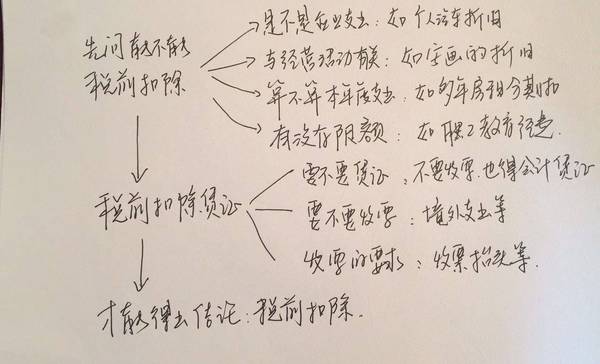 先问能不能
税前扣除
是不是企业支出：如个人汽车折旧
与经营活动有关：如字画的折旧
算不算本年度支出：如多年房租分期扣
有没有限额：如职工教育经费
税前扣除凭证
要不要凭证，不要发票，也得会计凭证
要不要发票：境外支出等
发票的要求：发票抬头等.
才能得出结论：税前扣除.